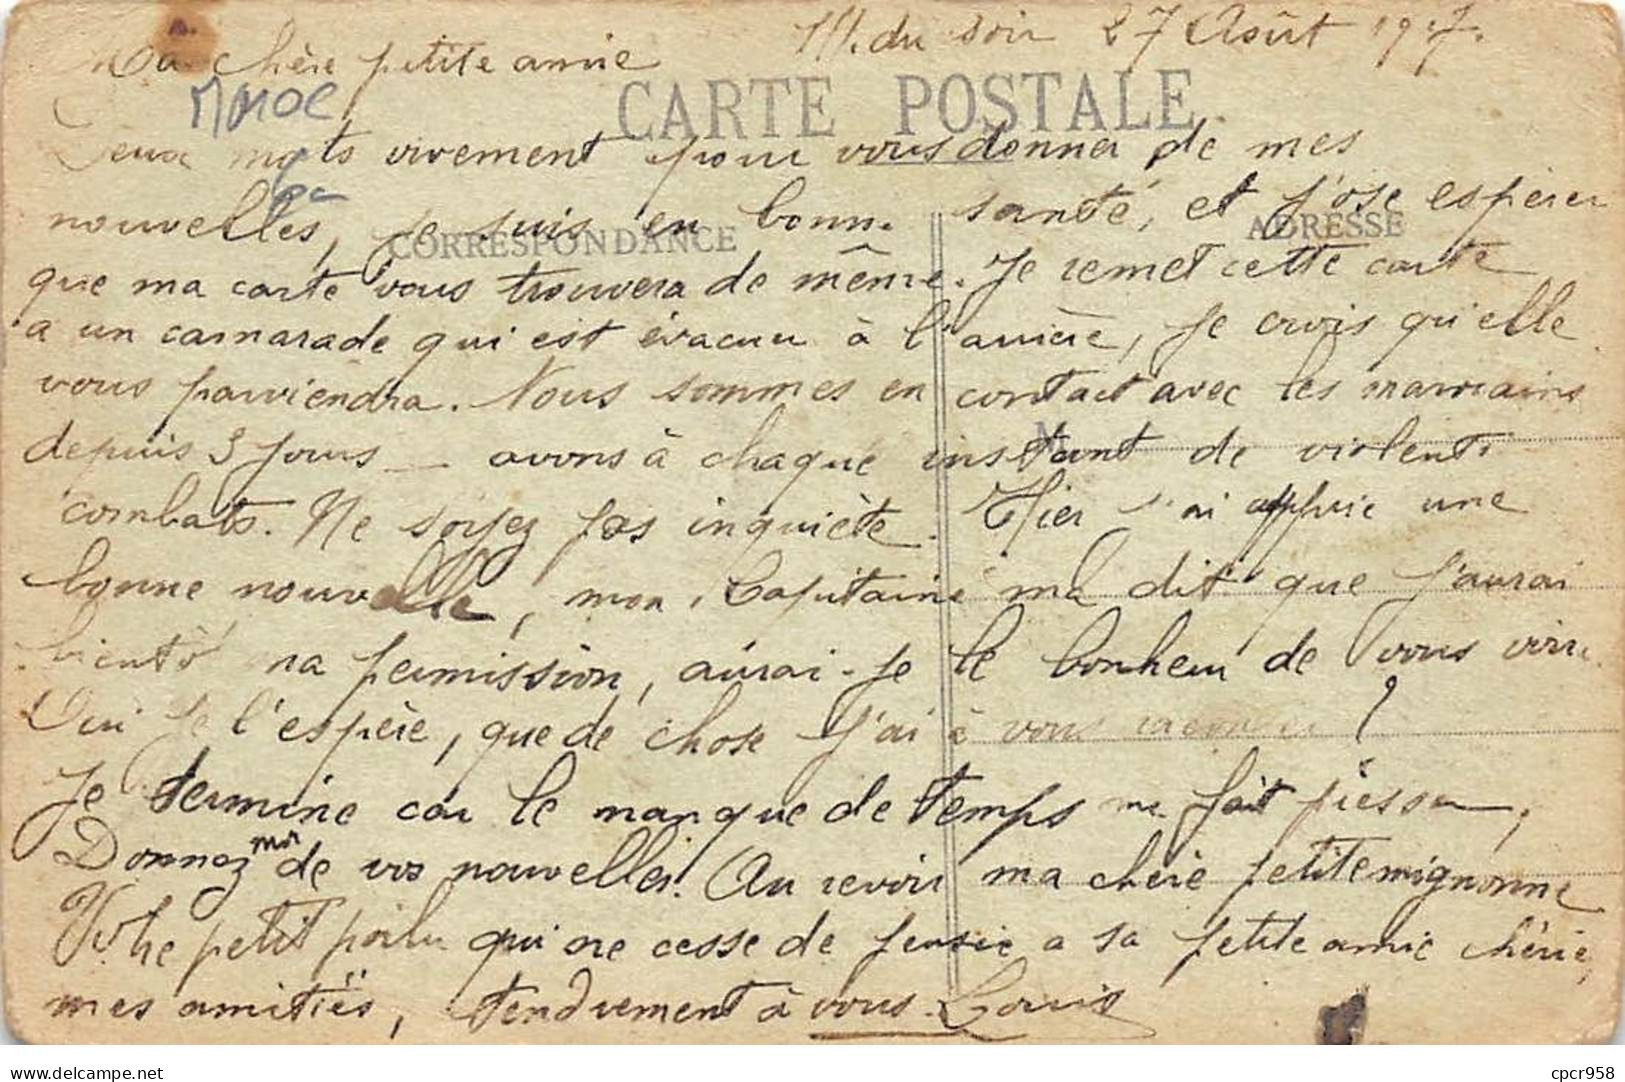 du soir 27 Août 1917.
Ma chère petite amie
Maroc
CARTE POSTALE
Deux mots vivement pour vous donner de mes
nouvelles, je suis en bonne santé, et j'ose espérer
CORRESPONDANCE ADRESSE
que ma carte vous trouvera de même. Je remet cette carte
a un camarade qui est évacuer à l'arrière, je crois qu'elle
vous parviendra. Nous sommes en contact avec les marocains
depuis 3 jours _ avons à chaque instant de violents
M
combats. Ne soyez pas inquiète. Hier j'ai appris une
bonne nouvelle, mon Capitaine ma dit que j'aurai
bientô ma permission, aurai-je le bonheur de vous voir
Oui je l'espère, que de chose j'ai à vous raconter ?
Je termine car le manque de temps me fait presser,
Donnez moi de vos nouvelles. Au revoir ma chère petite mignonne
Votre petit poilu qui ne cesse de penser a sa petite amie chérie,
mes amitiés, tendrement à vous. Louis
delcampe.net cpcr958